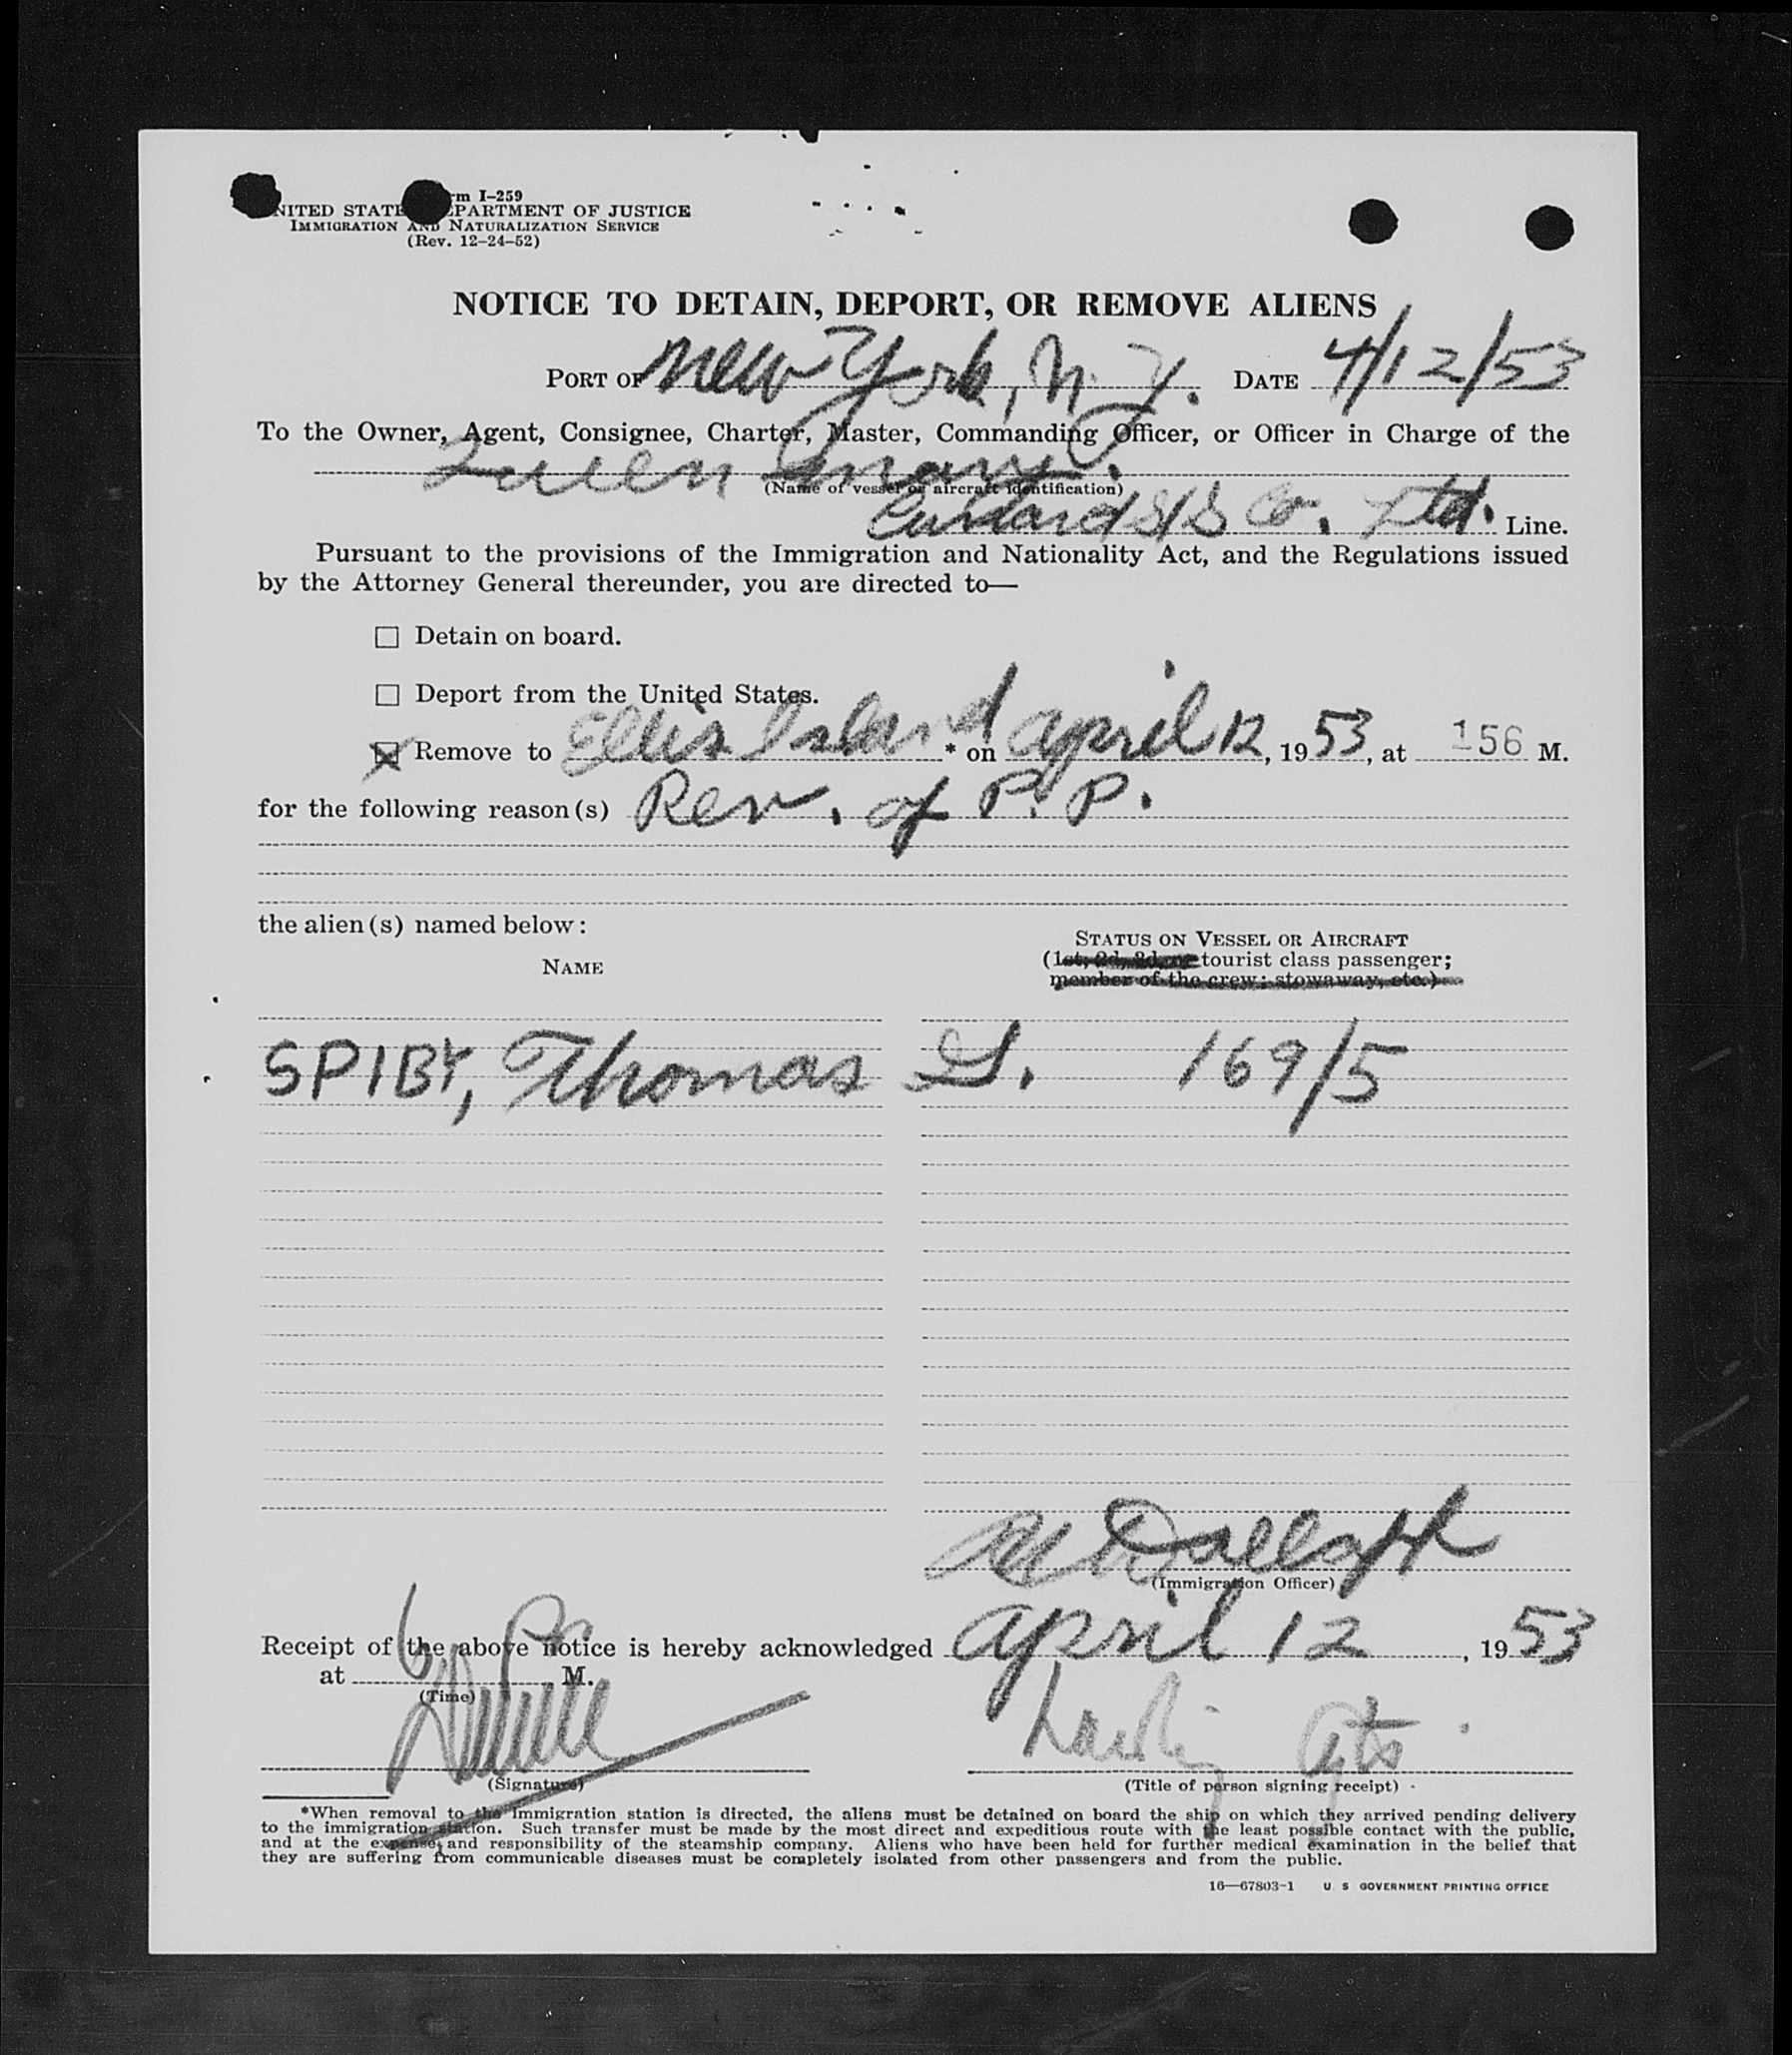 rm I-259
NITED STATE PARTMENT OF JUSTICE
IMMIGRATION AND NATURALIZATION SERVICE
(Rev. 12-24-52)
NOTICE TO DETAIN, DEPORT, OR REMOVE ALIENS
PORT OF New York, N.Y. DATE 4/12/53
To the Owner, Agent, Consignee, Charter, Master, Commanding Officer, or Officer in Charge of the
Queen Mary
(Name of vessel or aircraft identification)
Cunard S/S Co. Ltd. Line.
Pursuant to the provisions of the Immigration and Nationality Act, and the Regulations issued
by the Attorney General thereunder, you are directed to—
☐ Detain on board.
☐ Deport from the United States.
☒ Remove to Ellis Island * on April 12, 1953, at 156 M.
for the following reason(s) Rev. of P.P.
the alien(s) named below:
STATUS ON VESSEL OR AIRCRAFT
NAME
(1st, 2d, 3d, or tourist class passenger;
member of the crew; stowaway, etc.)
SPIBY, Thomas G. 169/5
(Immigration Officer)
Receipt of the above notice is hereby acknowledged April 12, 1953
at 6 P M.
(Time)
Agts.
(Signature)
(Title of person signing receipt)
*When removal to the immigration station is directed, the aliens must be detained on board the ship on which they arrived pending delivery
to the immigration station. Such transfer must be made by the most direct and expeditious route with the least possible contact with the public,
and at the expense and responsibility of the steamship company. Aliens who have been held for further medical examination in the belief that
they are suffering from communicable diseases must be completely isolated from other passengers and from the public.
16—67803-1 U. S. GOVERNMENT PRINTING OFFICE